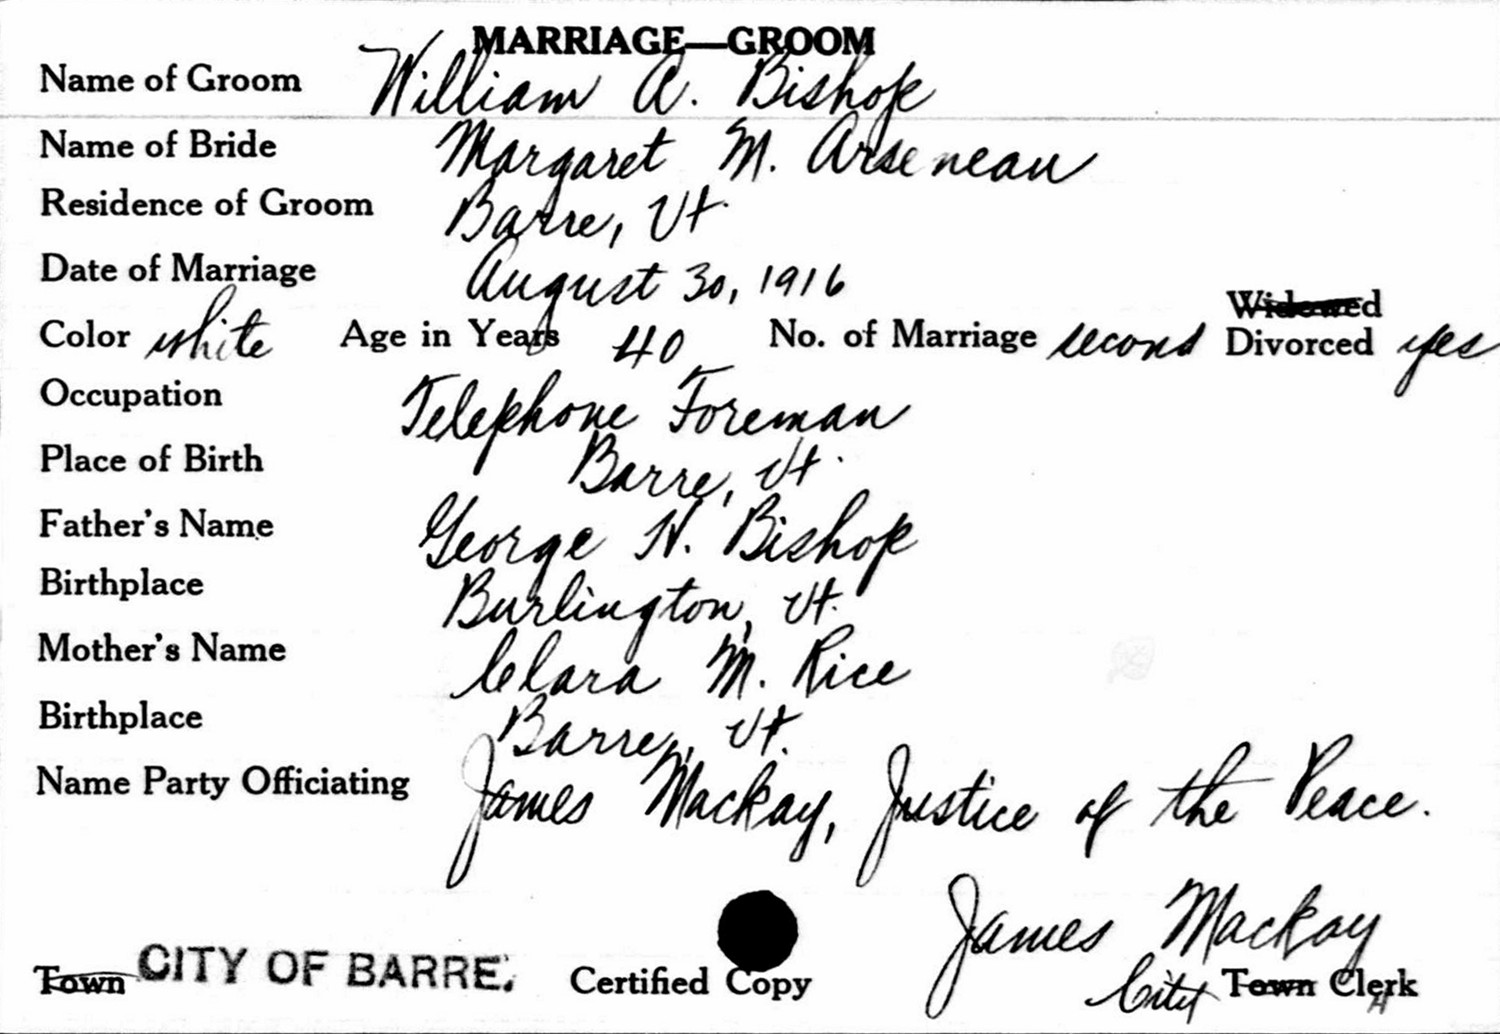 MARRIAGE—GROOM
Name of Groom William A. Bishop
Name of Bride Margaret M. Arseneau
Residence of Groom Barre, Vt.
Date of Marriage August 30, 1916
Widowed
Color white Age in Years 40 No. of Marriage second Divorced yes
Occupation Telephone Foreman
Place of Birth Barre, Vt.
Father's Name George N. Bishop
Birthplace Burlington, Vt.
Mother's Name Clara M. Rice
Birthplace Barre, Vt.
Name Party Officiating James Mackay, Justice of the Peace.
James Mackay
Town CITY OF BARRE. Certified Copy City Town Clerk